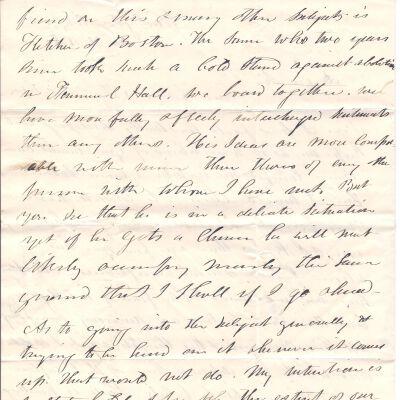 friend on this & many other subjects is
Fletcher of Boston. The same who two years
since took such a bold stand against abolition
in Faneuil Hall. we board together. we
have more fully & freely interchanged sentiments
than any others. His Ideas are more compar
able with mine than those of any other
person with whom I have met. But
you see that he is in a delicate situation
yet if he gets a chance he will not
utterly occupy nearly the same
ground that I shall if I go ahead.
As to going into the subject generally &
trying to be heard on it whenever it comes
up. that would not do. My intention is
the extent of our